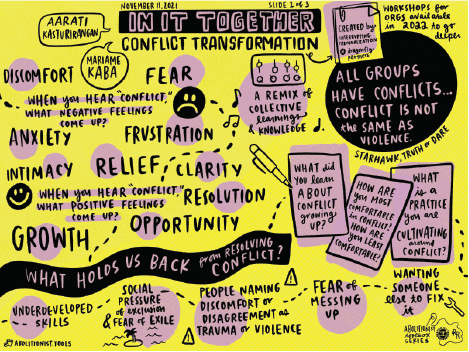 AARATI
KASTURIRANGAN
MARIAME
KABA
NOVEMBER 11, 2021
SLIDE 1 of 3
IN IT TOGETHER
CONFLICT TRANSFORMATION
CREATED by:
INTERRUPTING
CRIMINALIZATION
& dragonfly
PARTNERS
WORKSHOPS for
ORGS available
in 2022 to go
deeper
DISCOMFORT
FEAR
WHEN you HEAR "CONFLICT,"
WHAT NEGATIVE FEELINGS
COME UP?
ANXIETY
FRUSTRATION
A REMIX of
COLLECTIVE
learnings
& KNOWLEDGE
ALL GROUPS
HAVE CONFLICTS...
CONFLICT IS NOT
THE SAME AS
VIOLENCE.
STARHAWK, TRUTH or DARE
INTIMACY
RELIEF
CLARITY
WHEN you HEAR "CONFLICT,"
WHAT POSITIVE FEELINGS
COME UP?
RESOLUTION
GROWTH
OPPORTUNITY
WHAT DID
you LEARN
ABOUT
CONFLICT
GROWING
UP?
HOW ARE
you MOST
COMFORTABLE
in CONFLICT?
HOW ARE
you LEAST
COMFORTABLE?
WHAT is
a
PRACTICE
you are
CULTIVATING
around
CONFLICT?
WHAT HOLDS US BACK from RESOLVING
CONFLICT?
UNDERDEVELOPED
SKILLS
SOCIAL
PRESSURE
of EXCLUSION
& FEAR of EXILE
PEOPLE NAMING
DISCOMFORT or
DISAGREEMENT AS
TRAUMA or VIOLENCE
FEAR of
MESSING
UP
WANTING
SOMEONE
else TO FIX
it
ABOLITIONIST.TOOLS
ABOLITION
SERIES